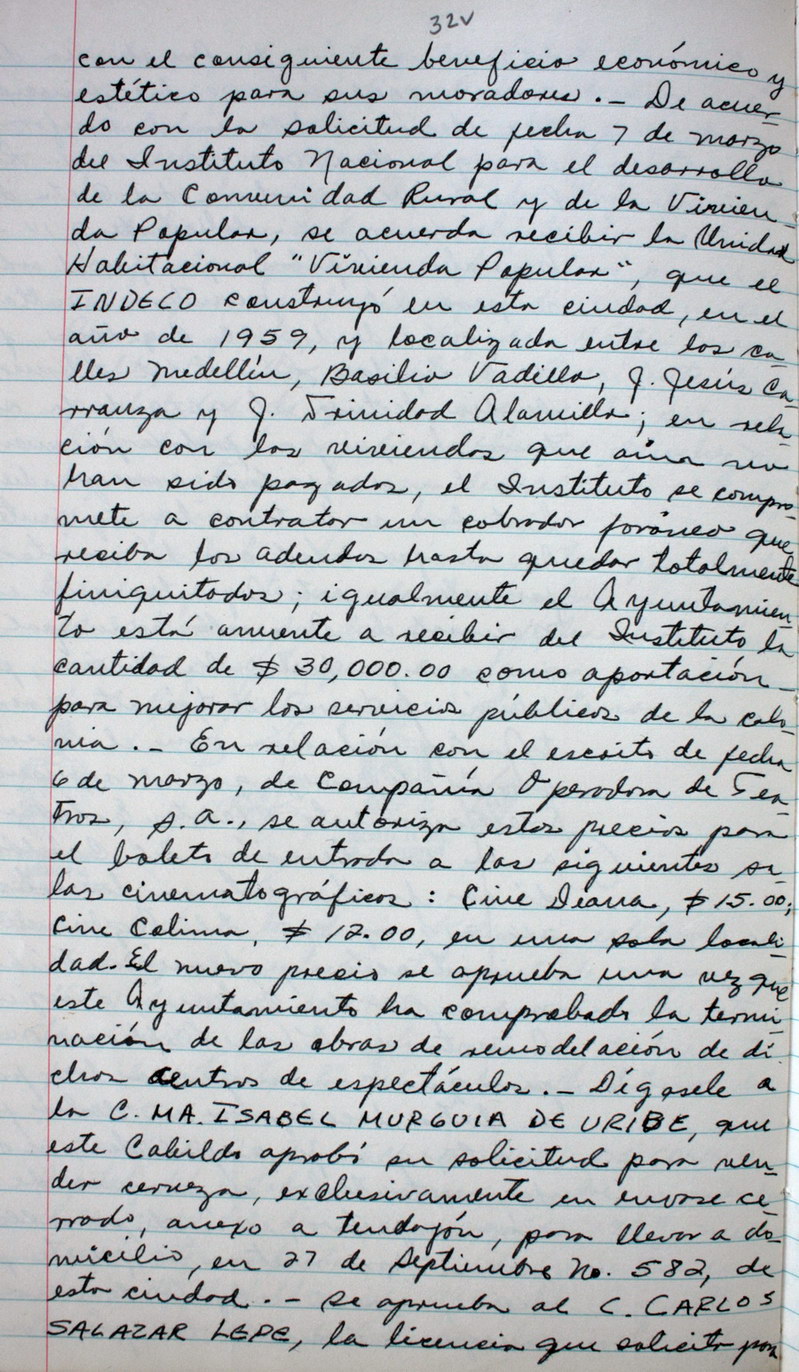 32v
con el consiguiente beneficio económico y
estético para sus moradores.- De acuer-
do con la solicitud de fecha 7 de marzo
del Instituto Nacional para el desarrollo
de la Comunidad Rural y de la Vivien-
da Popular, se acuerda recibir la Unidad
Habitacional "Vivienda Popular", que el
INDECO construyó en esta ciudad, en el
año de 1959, y localizada entre las ca-
lles Medellín, Basilio Vadillo, J. Jesús Ca-
rranza y J. Trinidad Alamillo; en rela-
ción con las viviendas que aún no
han sido pagadas, el Instituto se compro-
mete a contratar un cobrador foráneo que
reciba los adeudos hasta quedar totalmente
finiquitados; igualmente el Ayuntamien-
to está anuente a recibir del Instituto la
cantidad de $ 30,000.00 como aportación
para mejorar los servicios públicos de la colo-
nia.- En relación con el escrito de fecha
6 de marzo, de Compañía Operadora de Tea-
tros, S.A., se autoriza estos precios para
el boleto de entrada a las siguientes sa-
las cinematográficas: Cine Diana, $ 15.00;
Cine Colima, $ 12.00, en una sola locali-
dad. El nuevo precio se aprueba una vez que
este Ayuntamiento ha comprobado la termi-
nación de las obras de remodelación de di-
chos centros de espectáculos.- Dígasele a
la C. MA. ISABEL MURGUIA DE URIBE, que
este Cabildo aprobó su solicitud para ven-
der cerveza, exclusivamente en envase ce-
rrado, anexo a tendajón, para llevar a do-
micilio, en 27 de Septiembre No. 582, de
esta ciudad.- Se aprueba al C. CARLOS
SALAZAR LEPE, la licencia que solicita para